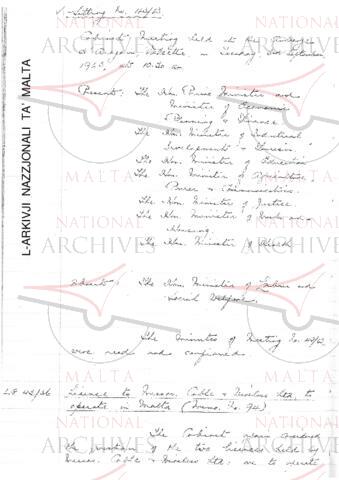 Sitting No.
Cabinet Meeting held at the
at Auberge d'Aragon, Valletta, on Tuesday, September
at 10.30 am
L-ARKIVJI NAZZJONALI TA' MALTA
Present: The Hon. Prime Minister and
Minister of Economic
Planning & Finance
The Hon. Minister of Industrial
Development & Tourism
The Hon. Minister of Education
The Hon. Minister of
Power & Communications
The Hon. Minister of Justice
The Hon. Minister of Works and
Housing
The Hon. Minister of Health
Absent: The Hon. Minister of Labour and
Social Welfare.
The Minutes of Meeting No.
were read and confirmed.
Licence to Messrs. Cable & Wireless Ltd. to
operate in Malta (Memo. No. 94)
The Cabinet
the question of the two licences held by
Messrs. Cable & Wireless Ltd: one to operate
NATIONAL
ARCHIVES
MALTA